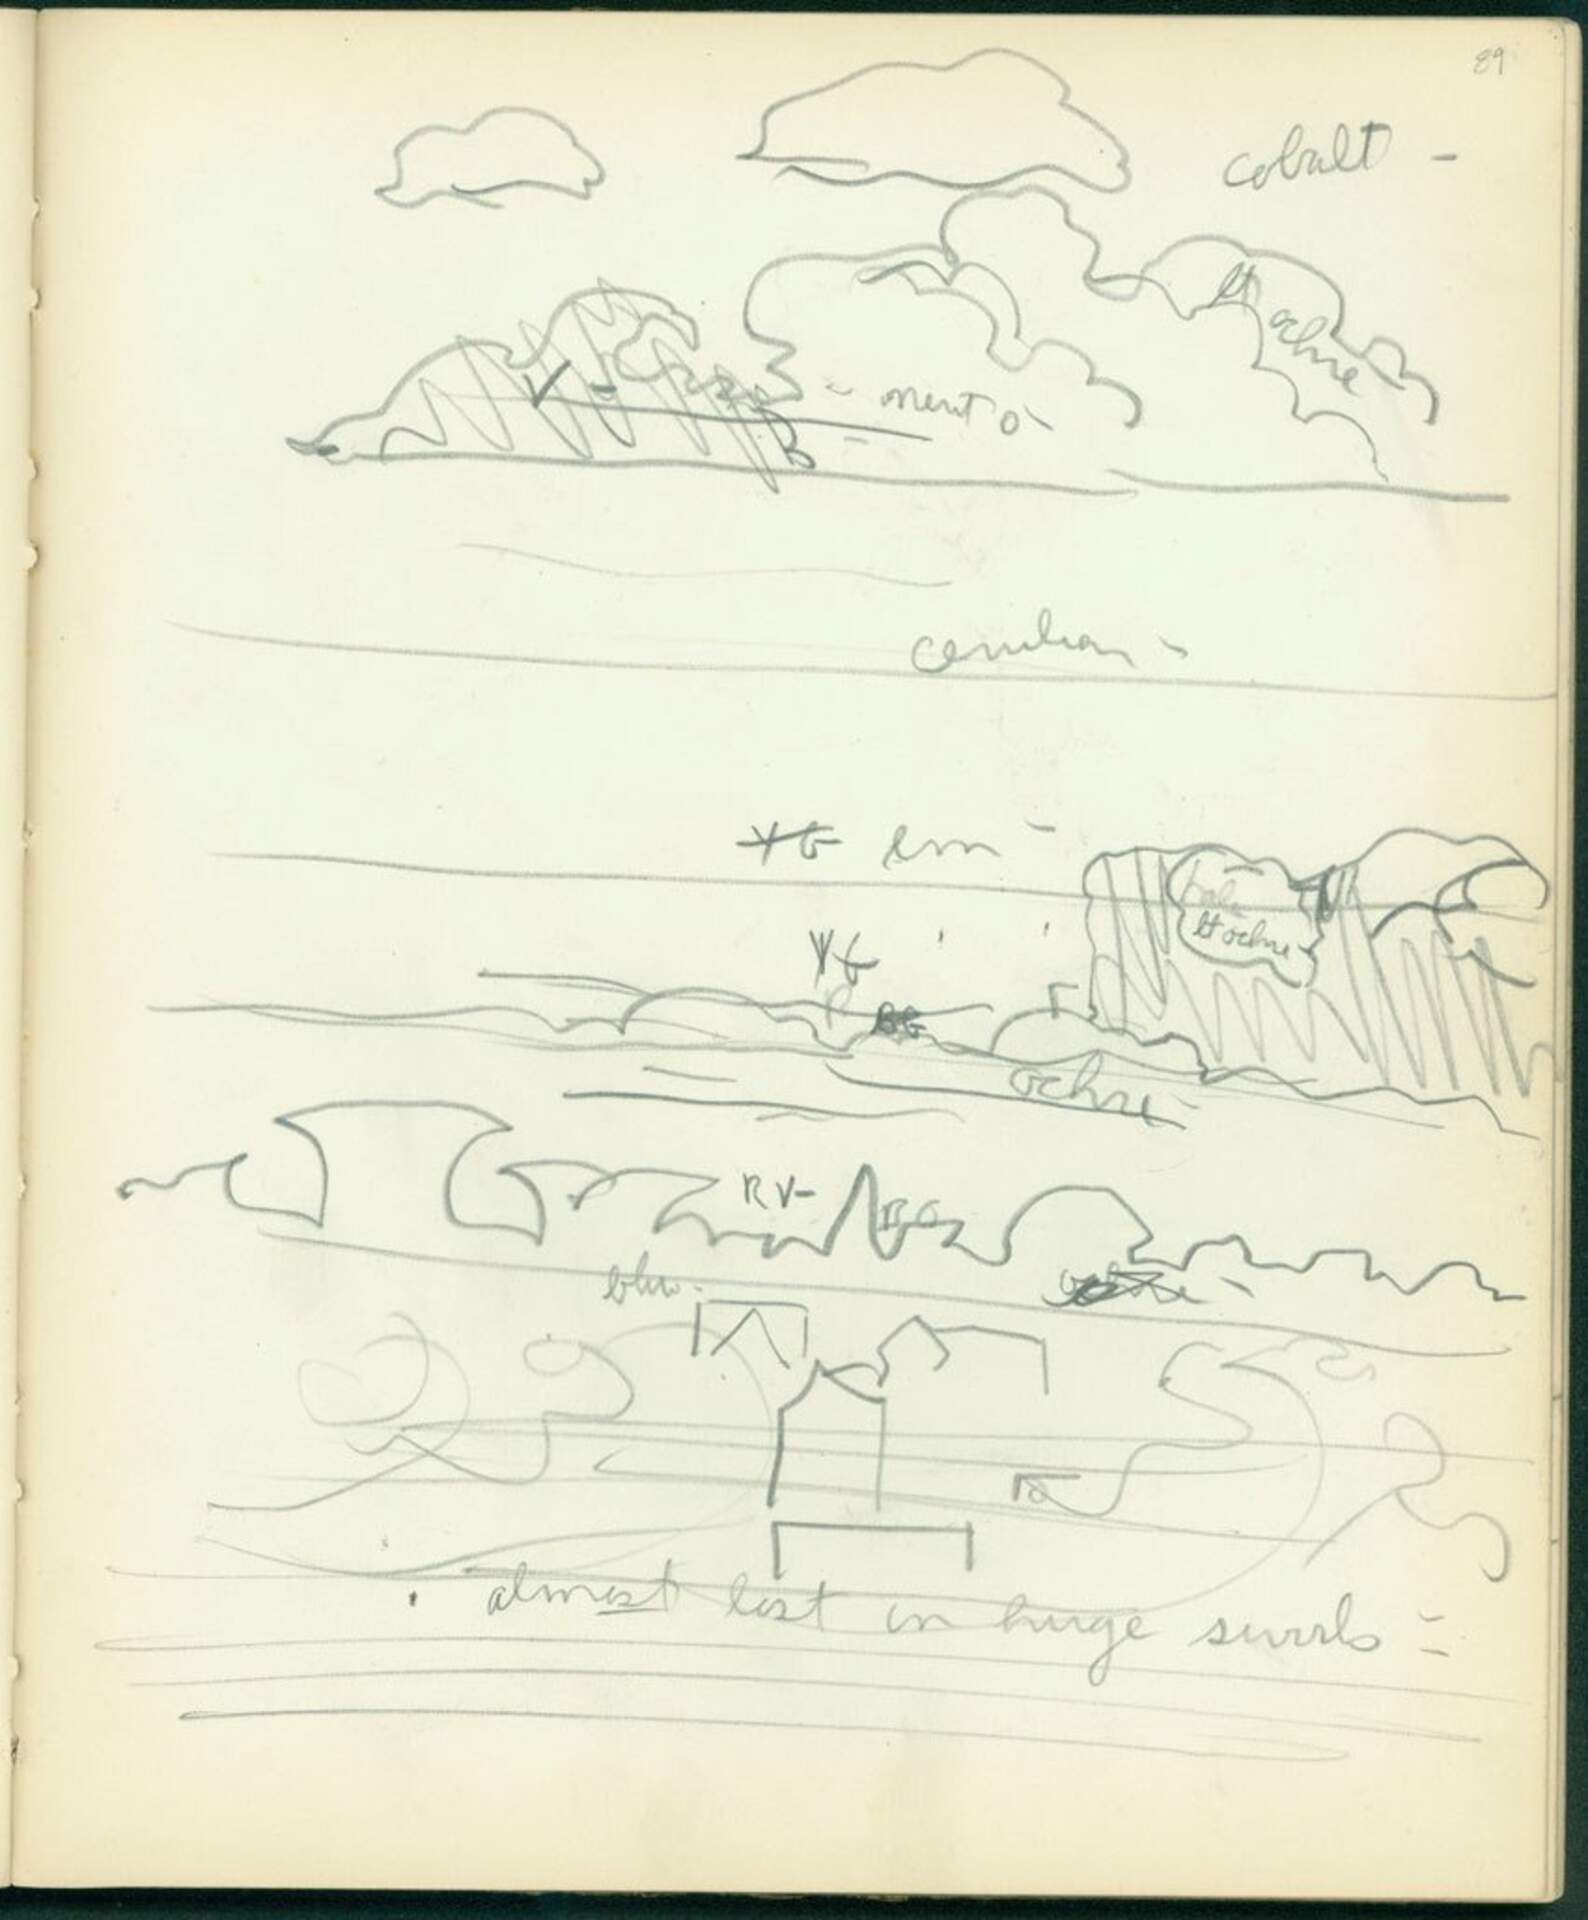 89
cobalt -
lt ochre
V -
B
- neut O -
cerulean -
YG em -
pale
lt ochre
YG
BG
ochre -
RV-
BG
blu -
almost lost in huge swirls =